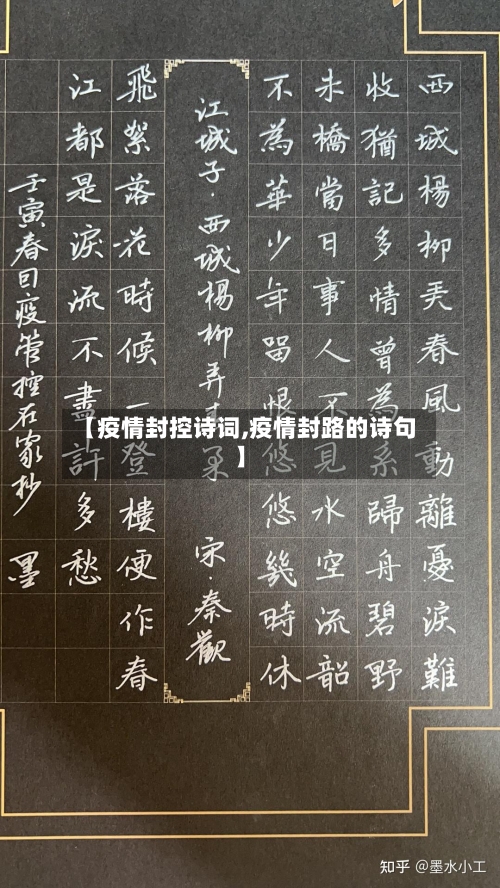 西城楊柳弄春風動離憂淚難
收猶記多情曾為系歸舟碧野
朱橋當日事人不見水空流韶
不為華少年留恨悠悠幾時休
江城子·西城楊柳弄春柔 宋·秦觀
飛絮落花時候一登樓便作春
江都是淚流不盡許多愁
壬寅春因疫管控在家抄 墨
【疫情封控诗词,疫情封路的诗句
】
知乎 @墨水小工